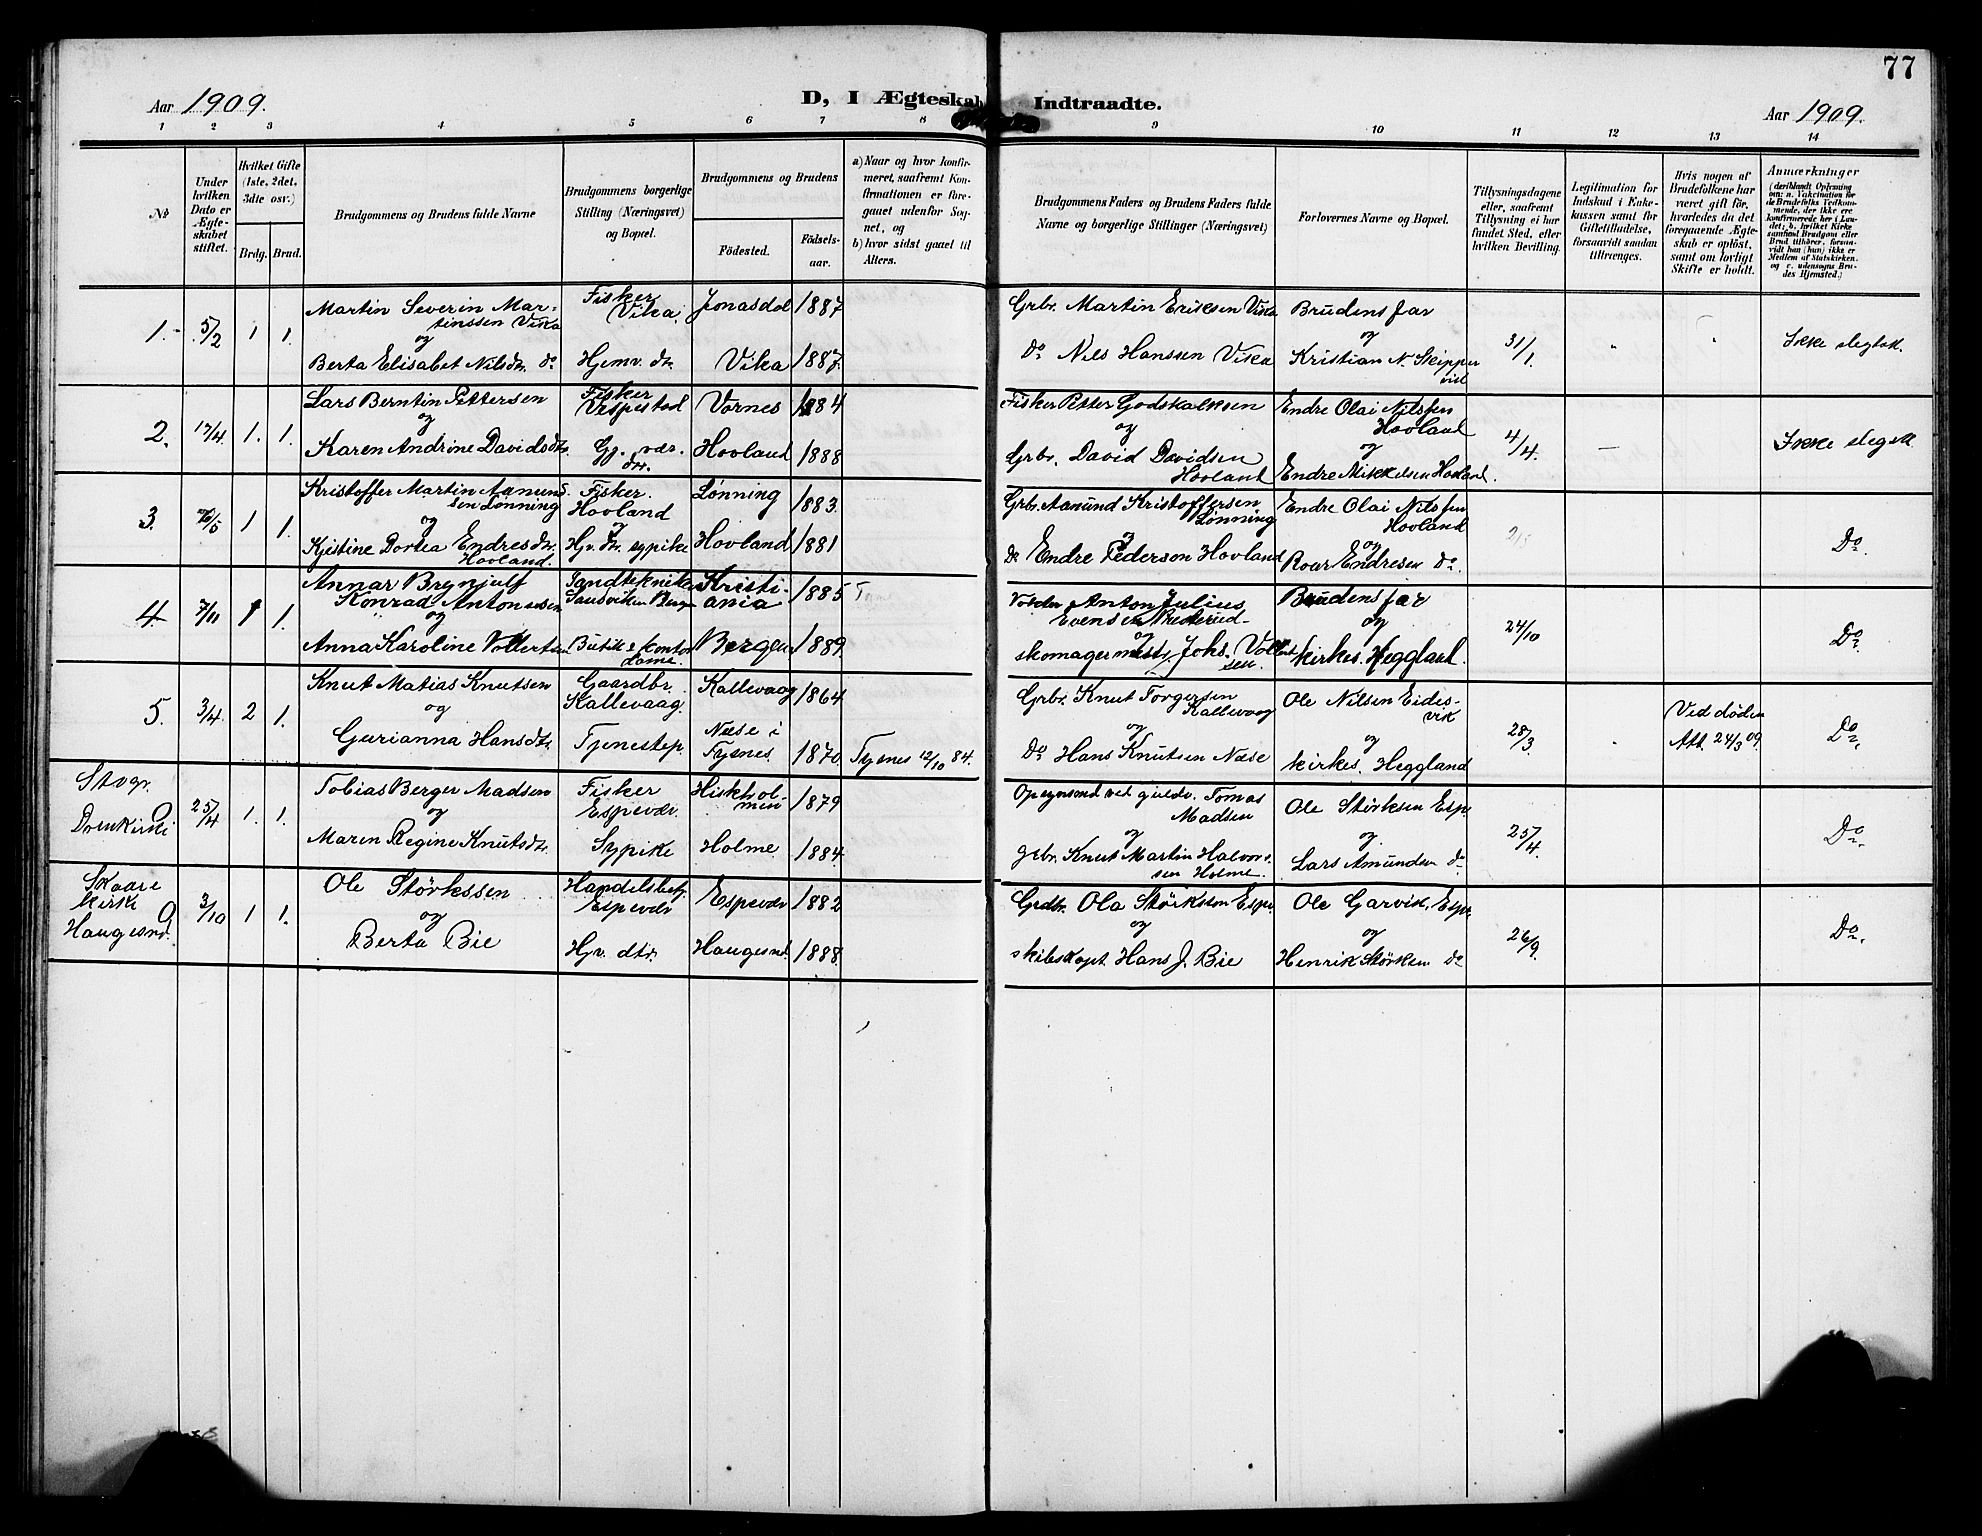 77
Aar 1909.
D, I Ægteskab Indtraadte.
Aar 1909.
1 2 3 4 5 6 7 8 9 10 11 12 13 14
№
Under hvilken Dato er Ægteskabet stiftet.
Hvilket Gifte (1ste, 2det, 3die osv.)
Brdg. Brud.
Brudgommens og Brudens fulde Navne
Brudgommens borgerlige Stilling (Næringsvei) og Bopæl.
Brudgommens og Brudens
Födested.
Födsels-aar.
a) Naar og hvor konfirmeret, saafremt Konfirmationen er foregaaet udenfor Sognet, og
b) hvor sidst gaaet til Alters.
Brudgommens Faders og Brudens Faders fulde Navne og borgerlige Stillinger (Næringsvei)
Forlovernes Navne og Bopæl.
Tillysningsdagene eller, saafremt Tillysning ei har fundet Sted, efter hvilken Bevilling.
Legitimation for Indskud i Enkekassen samt for Giftetilladelse, forsaavidt saadan tiltrænges.
Hvis nogen af Brudefolkene har været gift før, hvorledes da det foregaaende Ægteskab er opløst, samt om lovligt Skifte er holdt.
Anmærkninger
(deriblandt Oplysning om: a. Vakcination for de Brudefolks Vedkommende, der ikke ere konfirmerede her i Landet; b. hvilket Kirkesamfund Brudgom eller Brud tilhører, forsaavidt han (hun) ikke er Medlem af Statskirken. og c. udensogns Brudes Hjemsted.)
1. 5/2 1 1.
Martin Severin Mar-
tinssen Vika
og
Berta Elisabet Nilsdtr. do
Fisker
Vika.
Hjemv. dtr.
Jonasdal 1887
Vika 1887.
Grbr. Martin Eriksen Vika
do Nils Hansen Vika
Brudens far
og
Kristian N. Skipper
vik
31/1.
Ikke slegtsk.
2. 17/4. 1. 1.
Lars Berntin Pettersen
og
Karen Andrine Davidsdtr.
Fisker
Vespestad
Gj. vær.
dtr.
Vornes 1884
Hovland 1888
Fisker Petter Godskalksen
og
Grbr. David Davidsen
Hovland
Endre Olai Nilssen
Hovland
og
Endre Mikkelsen Hovland.
4/4.
Ikke slegtsk
3. 1 1.
Kristoffer Martin Aamund-
sen Lønning
og
Kjestine Dortea Endresdtr.
Hovland.
Fisker.
Hovland
og
Hjv. dtr. sypike
Lønning 1883.
Hovland 1881
Grbr. Aamund Kristoffersen
Lønning
og
Do Endre Pederson Hovland
Endre Olai Nilssen
Hovland
og
Roar Endresen do.
2/5
Do.
4. 7/11 1 1.
Annar Brynjulf
Konrad Antonsen
og
Anna Karoline Vollertsen
Tandtekniker
Sandviken Bergen
Butik & kontor
dame.
Kristi-
ania 1885
Bergen 1889.
Anton Julius
Evensen
og
skomagermestr. Johs. Vollert
sen.
Brudens far
og
kirkes. Heggland.
24/10
Do.
5. 3/4. 2 1.
Knut Matias Knutsen
og
Gurianna Hansdtr.
Gaardbr.
Kallevaag.
Tjenestep.
Kallevaag 1864
Næse i
Fyenes. 1870. Fyenes 12/10 84.
Grbr. Knut Torgersen
Kallevaag
og
Do Hans Knutsen Næse
Ole Nilsen Eides-
vik
og
kirkes. Heggland
28/3.
Ved døden
Att. 24/3 09.
Do.
25/4 1. 1.
Tobias Berger Madsen
og
Maren Regine Knutsdtr.
Fisker
Espevær.
Sypike
Hiskhol-
men 1879
Holme. 1884.
Tomas
Madsen
og
grbr. Knut Martin Halvor-
sen Holme.
Ole Størksen Esp.
og
Lars Amundsen do.
25/4.
Do.
Skaare
kirke
Haugesnd.
3/10 1 1.
Ole Størkssen
og
Berta Bie
Handelsbetj.
Espevær
Hjv. dtr.
Espevær 1882
Haugesnd. 1888.
Grdbr. Ola Størkson Espv.
og
skibskapt. Hans J. Bie
Ole Garvik, Espv.
og
Henrik Størksen do
26/9.
Do.